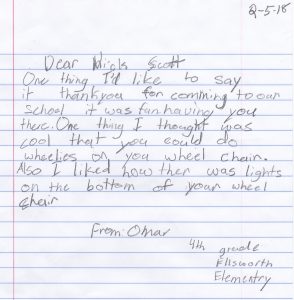 2-5-18
Dear Nicks Scott
One thing I'd like to say
it thankyou for comming to our
school it was fun having you
there. One thing I thought was
cool that you could do
wheelies on you wheel chair.
Also I liked how ther was lights
on the bottom of your wheel
chair
From: Omar
4th grade
Ellsworth
Elementry